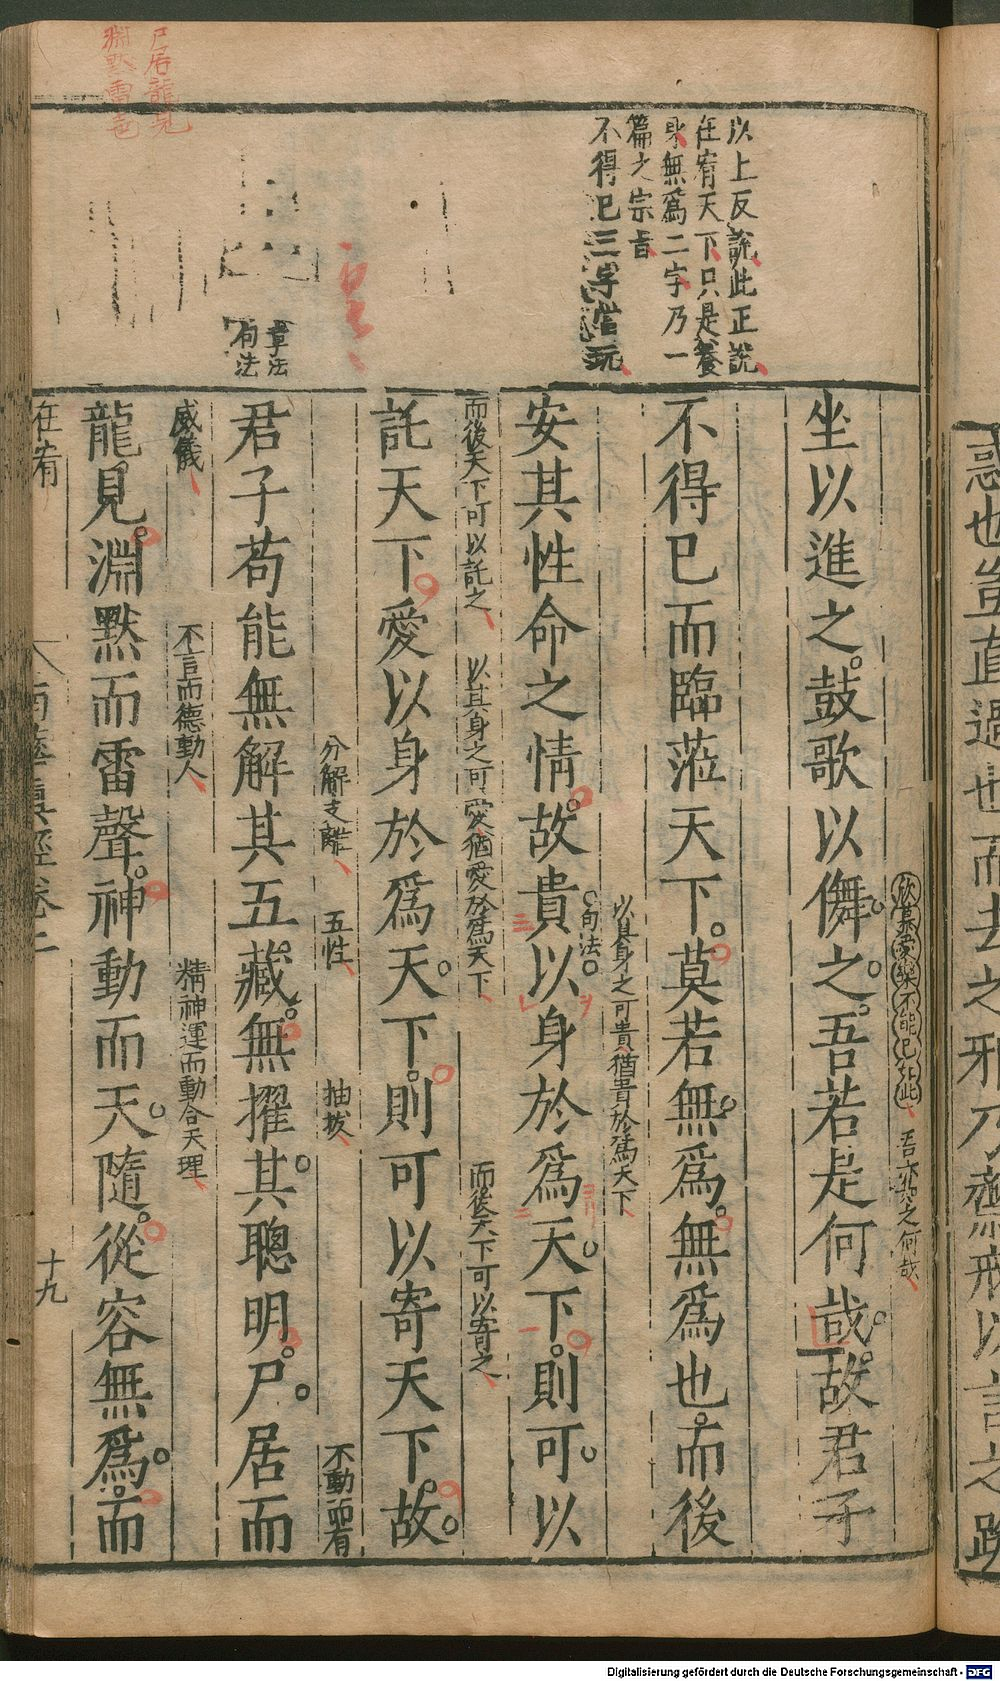 惑也豈直過也而去之邪乃齋戒以言之跪
以上反說此正說
在宥天下只是養
身無爲二字乃一
篇之宗旨
不得已三字當玩
章法
句法
尸居龍見
淵默雷
欣慕愛樂不能已於此 吾亦與之何哉
坐以進之鼓歌以儛之吾若是何哉故君子
不得已而臨蒞天下莫若無爲無爲也而後
以其身之可貴猶貴於爲天下
句法
安其性命之情故貴以身於爲天下則可以
而後天下可以託之 以其身之可愛猶愛於爲天下 而後天下可以寄之
託天下愛以身於爲天下則可以寄天下故
分解支離 五性 抽拔 不動而有
君子苟能無解其五藏無擢其聰明尸居而
威儀 不言而德動人 精神運而動合天理
龍見淵默而雷聲神動而天隨從容無爲而
在宥 南華眞經卷二 十九
Digitalisierung gefördert durch die Deutsche Forschungsgemeinschaft - DFG